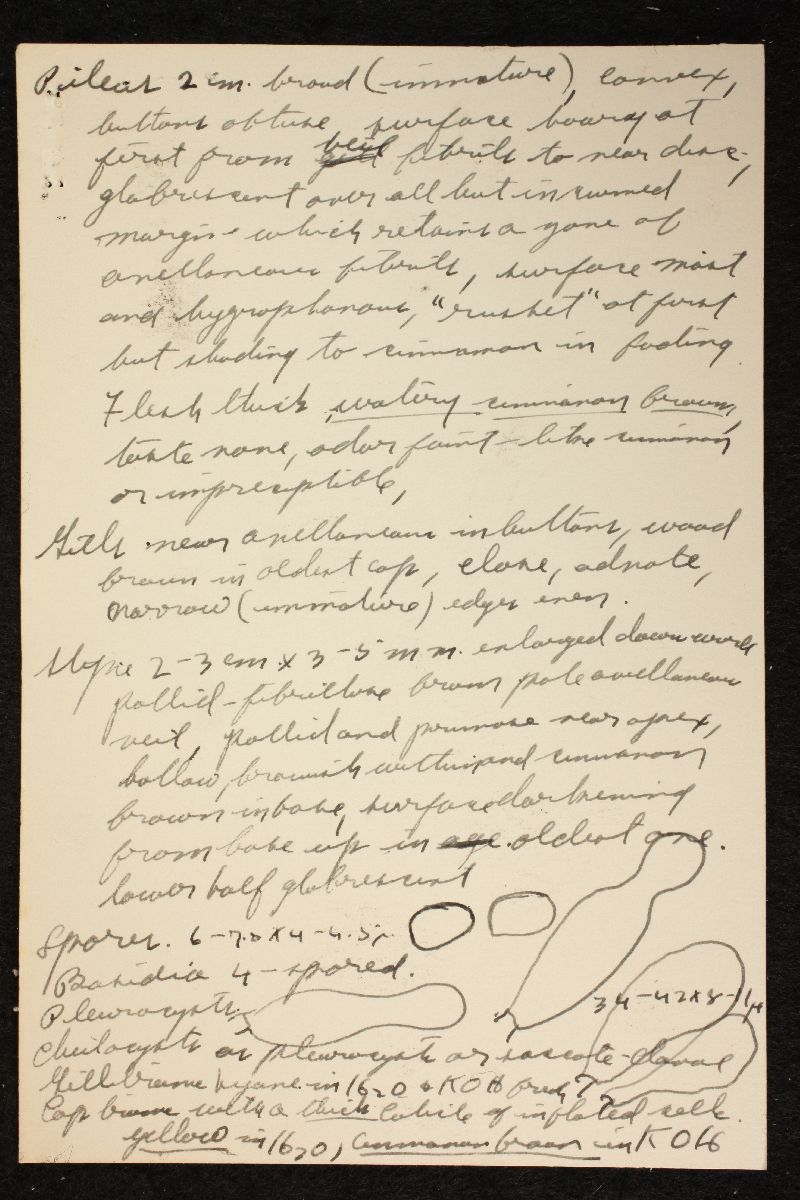 Pileus 2 cm. broad (immature), convex,
buttons obtuse surface hoary at
first from veil fibrils to near disc,
glabrescent over all but incurved
margin which retains a zone of
avellaneous fibrils, surface moist
and hygrophanous, "russet" at first
but shading to cinnamon in fading
Flesh thick, watery cinnamon brown,
taste none, odor faint - like cinnamon
or impreceptible,
Gills near avellaneous in buttons, wood
brown in oldest cap, close, adnate,
narrow (immature) edges even.
Stipe 2-3 cm x 3-5 mm. enlarged downward
pallid-fibrillose from pale avellaneous
veil, pallid and pruinose near apex,
hollow, brownish within and cinnamon
brown in base, surface darkening
from base up in age oldest one.
lower half glabrescent
Spores. 6-7.5 x 4-4.5μ.
Basidia 4-spored.
34-42x8-14
Pleurocysts,
Cheilocysts as pleurocysts or saccate-clavate
Gill trame hyaline in H2O & KOH fresh?
Cap trame with a thick cuticle of inflated cells.
yellow in H2O, cinnamon brown in KOH